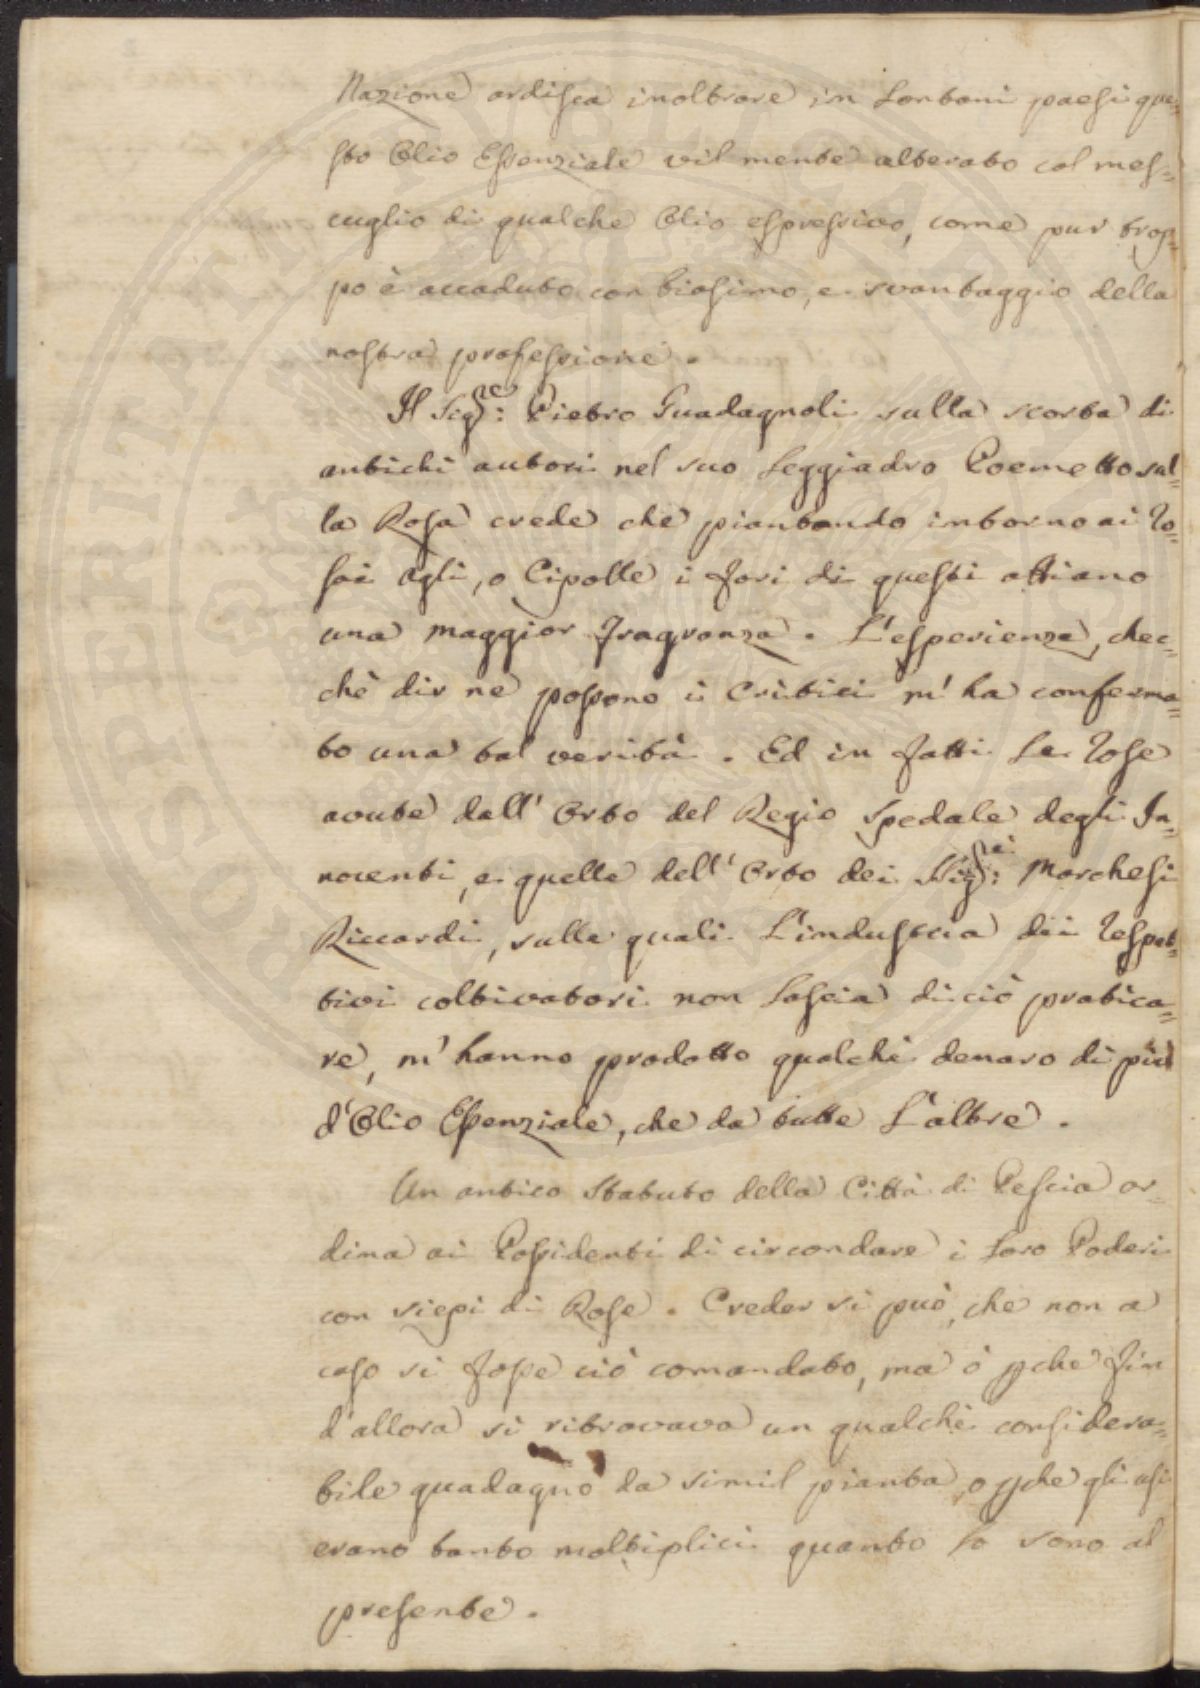 Nazione ardisca inoltrare in lontani paesi que=
sto Olio Essenziale vilmente alterato col mes=
cuglio di qualche Olio espressivo, come pur trop=
po è accaduto con biasimo, e svantaggio della
nostra professione.
Il Sig.re: Pietro Guadagnoli sulla scorta di
antichi autori nel suo leggiadro Poemetto sul=
la Rosa crede che piantando intorno ai Ro=
sai Agli, o Cipolle i fiori di questi attiano
una maggior fragranza. L'esperienza, chec=
chè dir ne possono i Critici m'ha conferma=
to una tal verità. Ed in fatti le Rose
avute dall'Orto del Regio Spedale degli In=
nocenti, e quelle dell'Orto dei Sig.ri: Marchesi
Riccardi, sulle quali l'industria dei respet=
tivi coltivatori non lascia di ciò pratica=
re, m'hanno prodotto qualche denaro di più
d'Olio Essenziale, che da tutte l'altre.
Un antico Statuto della Città di Pescia or=
dina ai Possidenti di circondare i loro Poderi
con siepi di Rose. Creder si può, che non a
caso si fosse ciò comandato, ma ò pche fin
d'allora si ritrovava un qualche considera=
bile guadagno da simil pianta, o pche gli usi
erano tanto moltiplici quanto lo sono al
presente.
PROSPERITATI PVBLICAE